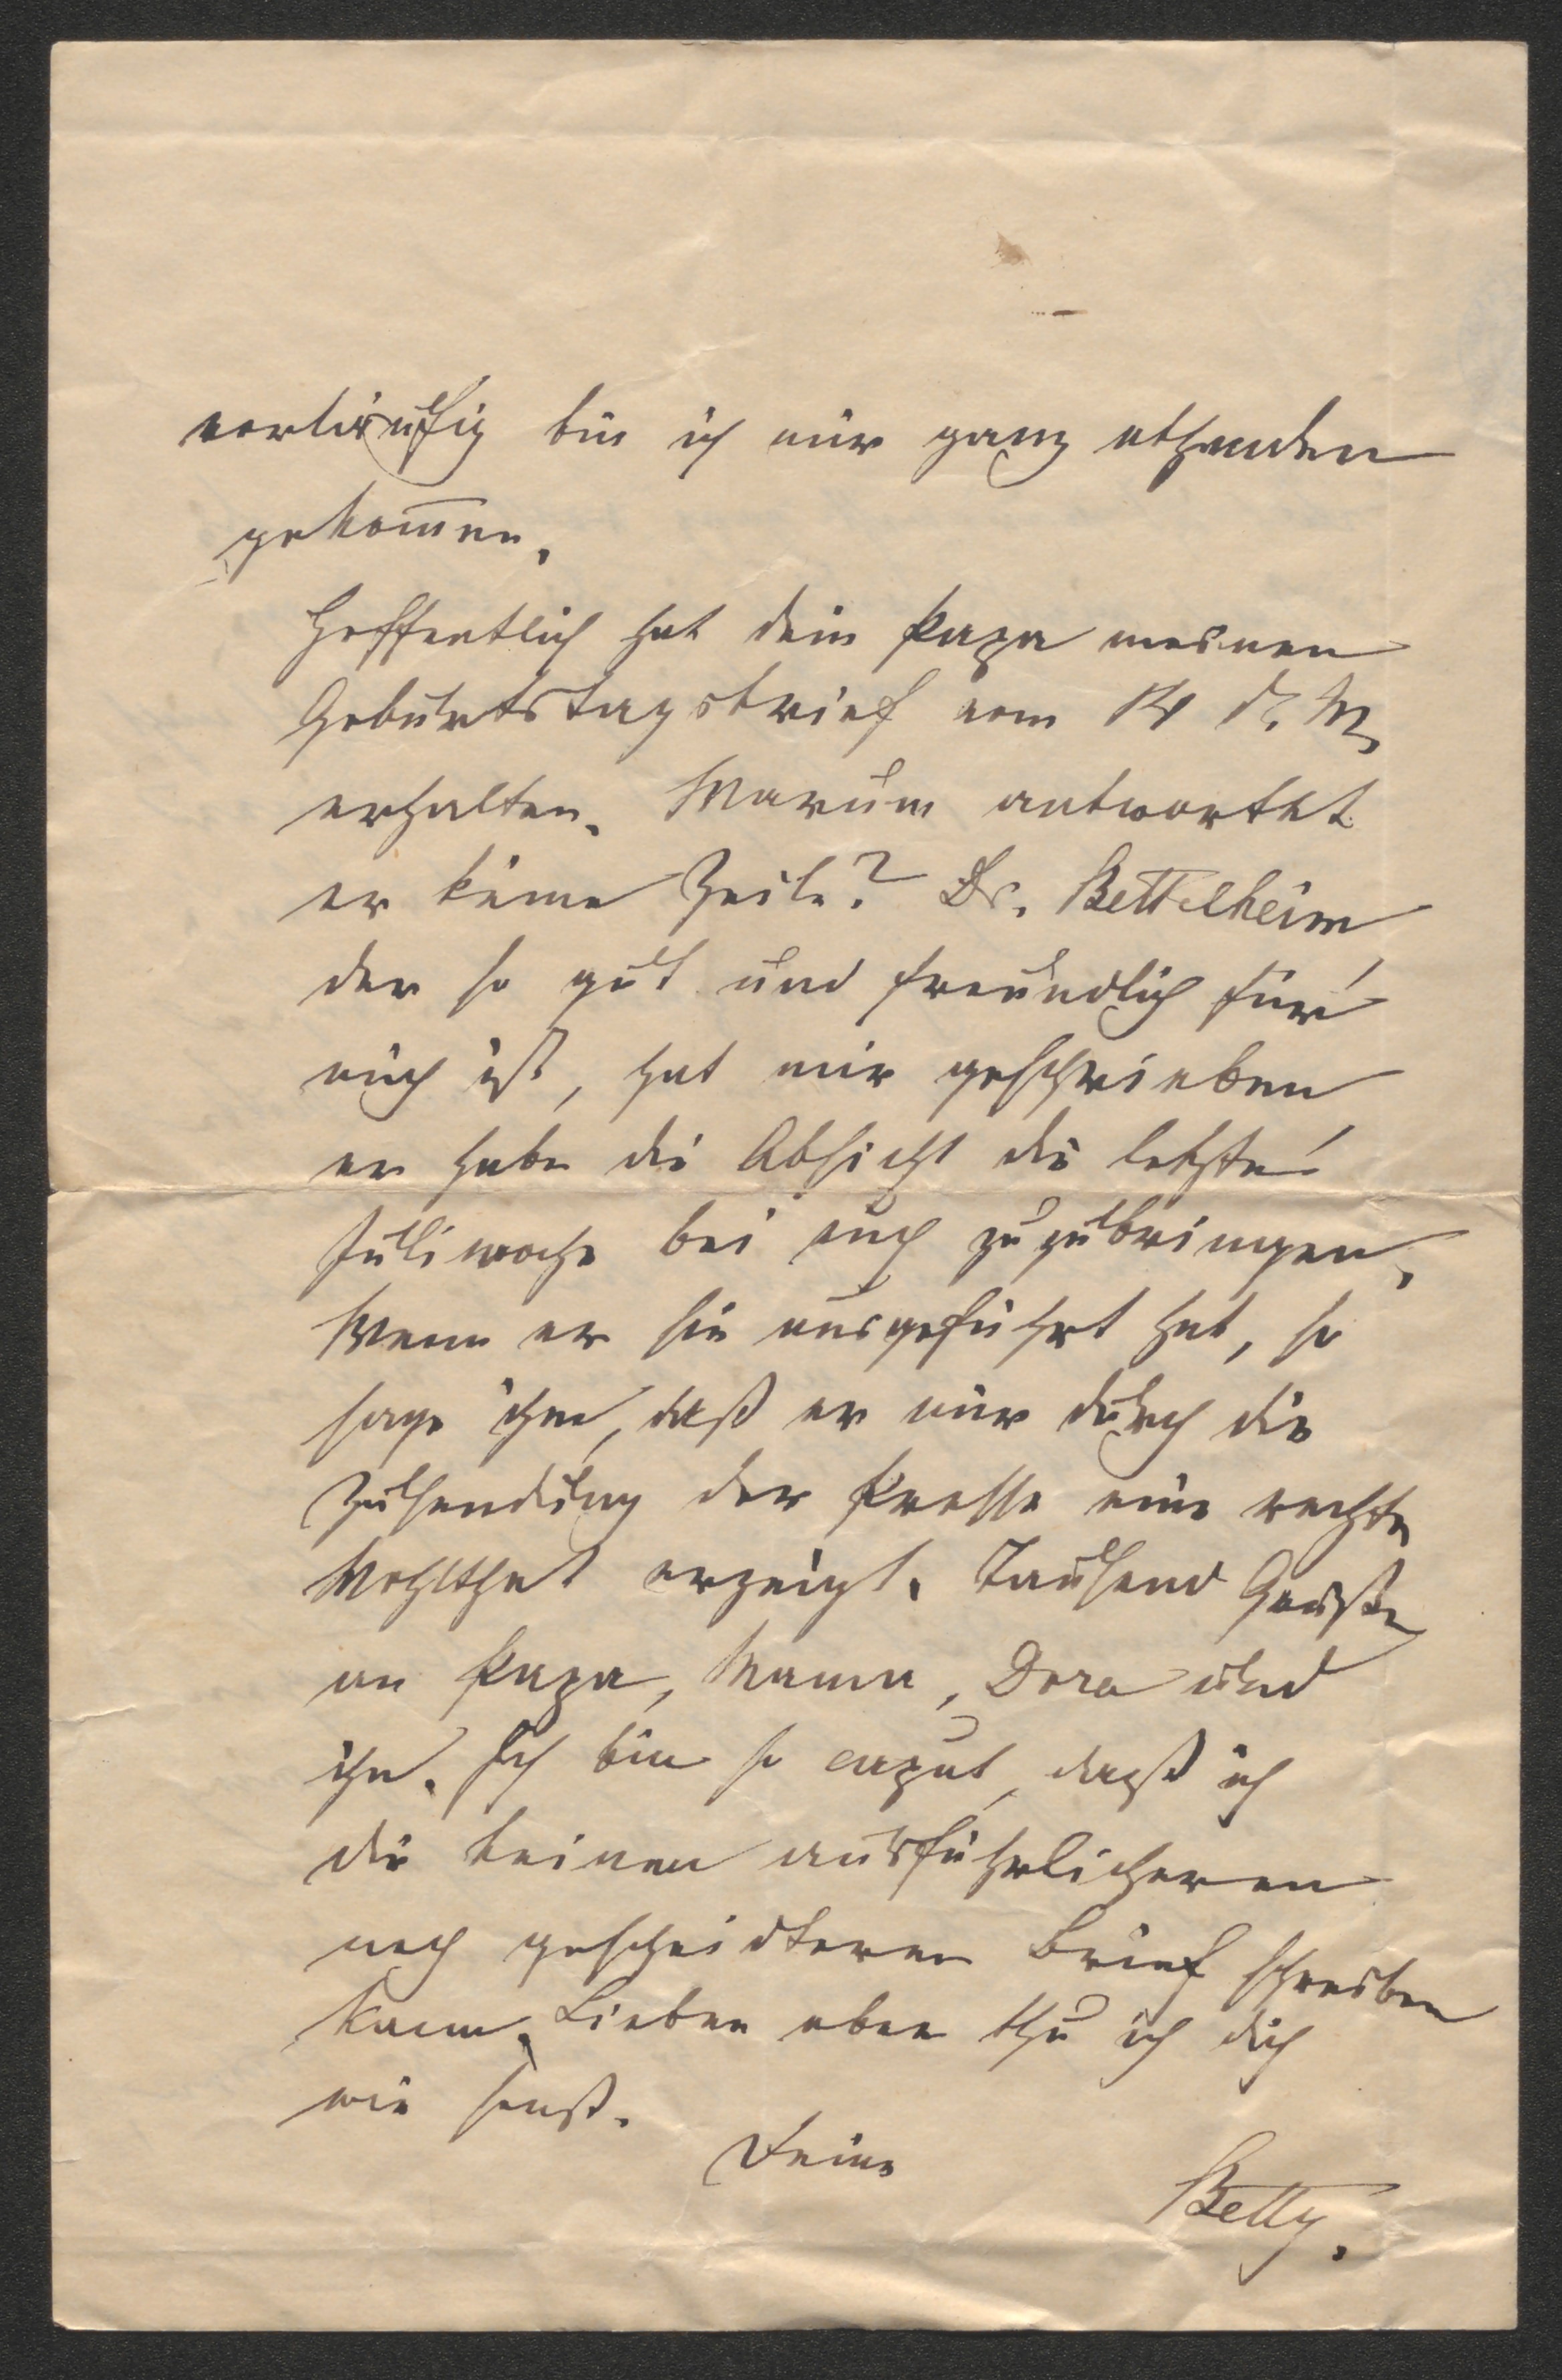 vorläufig bin ich mir ganz abhanden
gekom̄en.
Hoffentlich hat dein Papa meinen
Geburtstagsbrief vom 14 d. M
erhalten. Warum antwortet
er keine Zeile? Dr. Bettelheim
der so gut und freundlich für
mich ist, hat mir geschrieben
er habe die Absicht die letzte
Juliwoche bei euch zuzubringen.
Wenn er sie ausgeführt hat, so
sage ihm, daß er mir durch die
Zusendung der Presse eine rechte
Wohlthat erzeigt. Tausend Grüße
an Papa, Mama, Dora und
ihn. Ich bin so caput, daß ich
dir keinen ausführlicheren
noch gescheidteren Brief schreiben
kann. Lieben aber thu ich dich
wie sonst.
Deine
Betty.